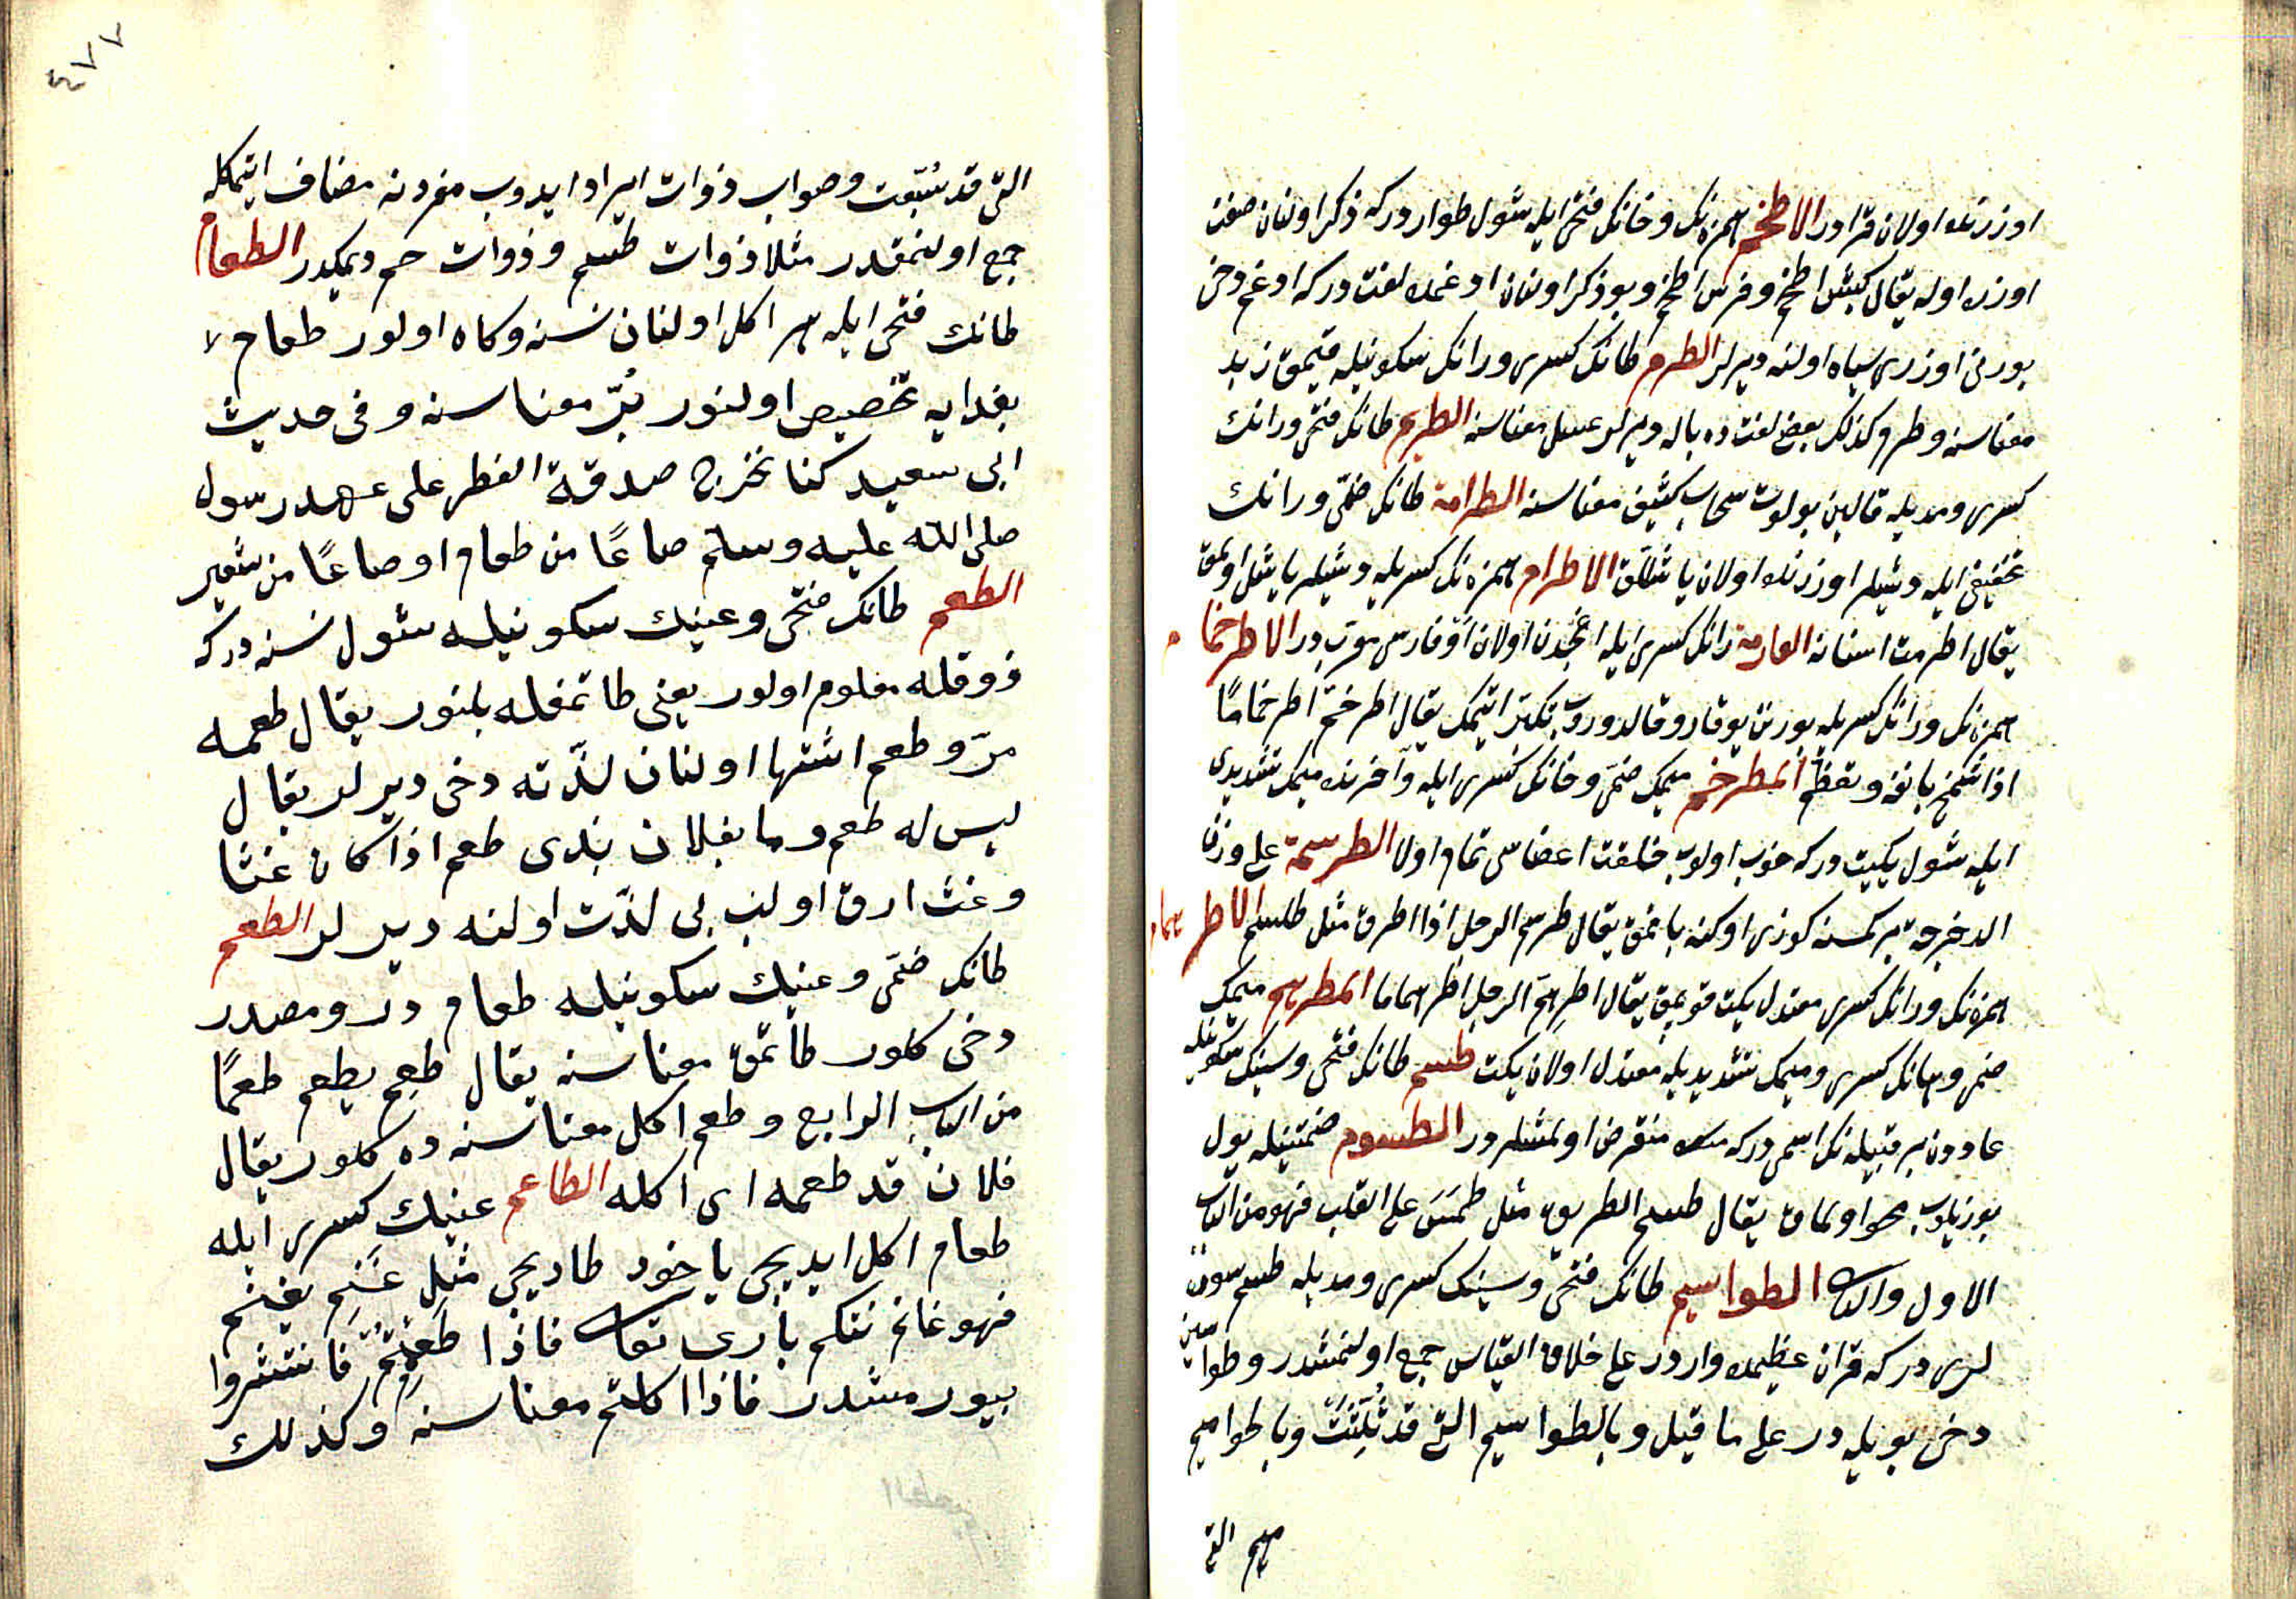 اوزرنده اولان قرادر الاطخم همزه‌نك و خانك فتحی ایله شول طواردركه ذكر اولنان صفت
اوزره اوله یقال كبش اطخم و فرس اطخم و بو ذكر اولنان ادغمده لغت دركه ادغم دخی
بورنی اوزری سیاه اولنه دیرلر الطرم طانك كسری و رانك سكونیله قیمق زبد
معناسنه و طرم كذلك بعض لغت ده باله دیرلر عسل معناسنه الطریم طانك فتحی و رانك
كسری و مدیله قالین بولوت سحاب كثیف معناسنه الطرامة طانك ضمّی و رانك
تخفیفی ایله دیشلر اوزرنده اولان یاشللق الاطرام همزه‌نك كسریله دیشلر یاشل اولمق
یقال اطرمت اسنانه الطارمة رانك كسری ایله اغجدن اولان او فارسی معرب در الاطرخمام
همزه‌نك و رانك كسریله بورنن یوقارو قالدوروب تكبر ایتمك یقال اطرخمّ اطرخمامًا
اذا شمخ بانفه و تعظم المطرخم میمك ضمی و خانك كسری ایله و آخرنده میمك تشدیدی
ایله شول یكیت دركه خوب اولوب خلقت اعضاسی تمام اولا الطرسمة علی وزن
الدخرجة بر كمسنه كوزی اوكنه باقمق یقال طرسم الرجل اذا اطرق مثل طلسم الاطرهمام
همزه‌نك و رانك كسری معتدل یكت قویمق یقال اطرهمّ الرجل اطرهماما المطرهم میمك
ضمی و هانك كسری و میمك تشدیدیله معتدل اولان یكت طسم طانك فتحی و سینك سكونیله
عاددن بر قبیله‌نك اسمی دركه منقرض اولمشلردر الطسوم ضمتینله یول
بوزیلوب محو اولماق یقال طسم الطریق مثل طمس علی القلب فهو من الباب
الاول والثانی الطواسیم طانك فتحی و سینك كسری و مدیله طسم سوره
لری دركه قران عظیمده واردر علی خلاف القیاس جمع اولنمشدر و طواسین
دخی بویله در علی ما قیل و بالطواسیم التی قد ثُلّثت و بالحوامیم
میم التی
٤٧٧
التی قد سُبّعت و صواب ذوات ایراد ایدوب مفردنه مضاف ایتمكله
جمع اولنمقدر مثلا ذوات طسم و ذوات حم دیمكدر الطعام
طانك فتحی ایله هر اكل اولنان نسنه و كاه اولور طعام لا
بغدایه تخصیص اولنور بُرّ معناسنه و فی حدیث
ابی سعید كنا نخرج صدقة الفطر علی عهد رسول
صلی الله علیه وسلم صاعًا من طعام او صاعًا من شعیر
الطعم طانك فتحی و عینك سكونیله شول نسنه دركه
ذوقله معلوم اولور یعنی طاتمغله بلنور یقال طعمه
مرّ و طعم اشتها اولنان لذّته دخی دیرلر یقال
لیس له طعم و ما بفلان بذی طعم اذا كان غثا
و غث ارق اولنب بی لذّت اولنه دیرلر الطعم
طانك ضمّی و عینك سكونیله طعام در و مصدر
دخی كلور طاتمق معناسنه یقال طعم یطعم طعمًا
من الباب الرابع و طعم اكل معناسنه ده كلور یقال
فلان قد طعمه ای اكله الطاعم عینك كسری ایله
طعام اكل ایدیجی یا خود طادیجی مثل غَنِم یغنم
فهو غانم نتكم باری تعالی فاذا طَعِمْتُمْ فانتشروا
بیورمشدر فاذا اكلتم معناسنه و كذلك